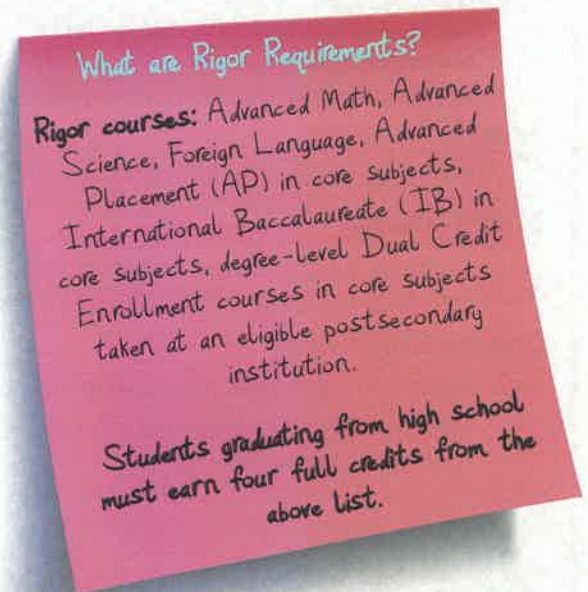 What are Rigor Requirements?
Rigor courses: Advanced Math, Advanced
Science, Foreign Language, Advanced
Placement (AP) in core subjects,
International Baccalaureate (IB) in
core subjects, degree-level Dual Credit
Enrollment courses in core subjects
taken at an eligible postsecondary
institution.
Students graduating from high school
must earn four full credits from the
above list.